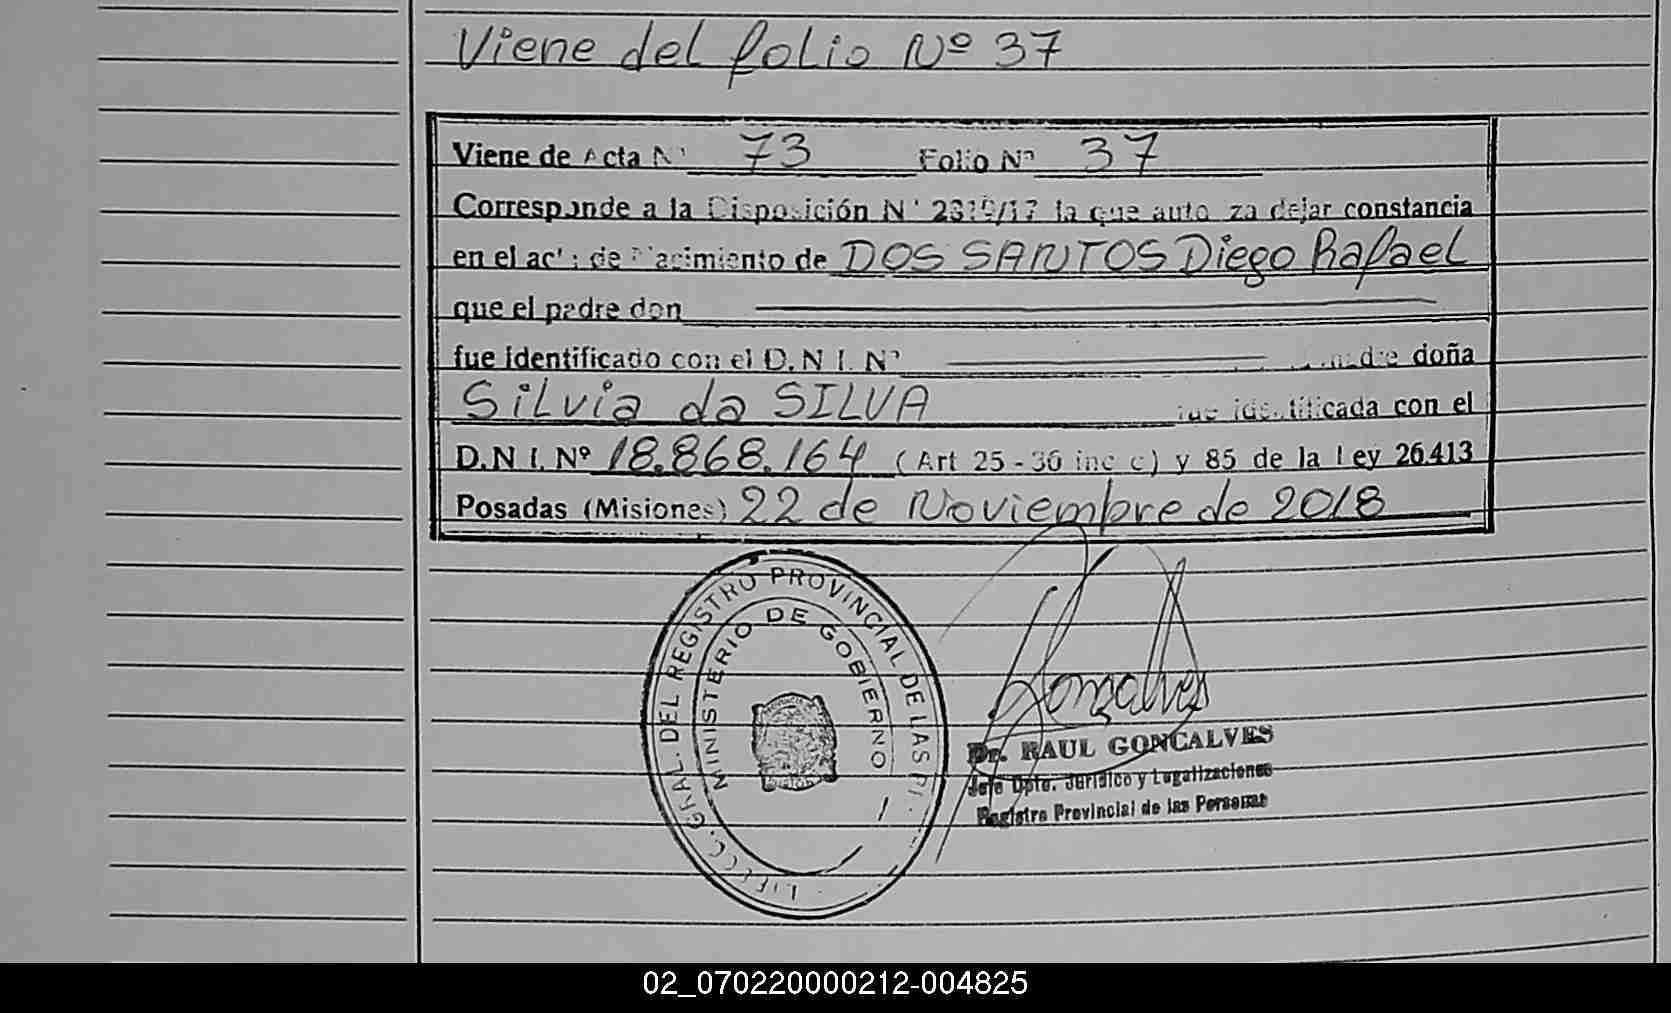 Viene del folio Nº 37
Viene de Acta Nº 73 Folio Nº 37
Corresponde a la Disposición Nº la que autoriza dejar constancia
en el acta de Nacimiento de DOS SANTOS Diego Rafael
que el padre don
fue identificado con el D.N.I. Nº madre doña
Silvia da SILVA fue identificada con el
D.N.I. Nº 18.868.164 (Art 25 - 36 inc c) y 85 de la Ley 26.413
Posadas (Misiones) 22 de Noviembre de 2018
GRAL. DEL REGISTRO PROVINCIAL DE LAS
MINISTERIO DE GOBIERNO
Goncalves
Dr. RAUL GONCALVES
Jefe Dpto. Jurídico y Legalizaciones
Registro Provincial de las Personas
02_070220000212-004825